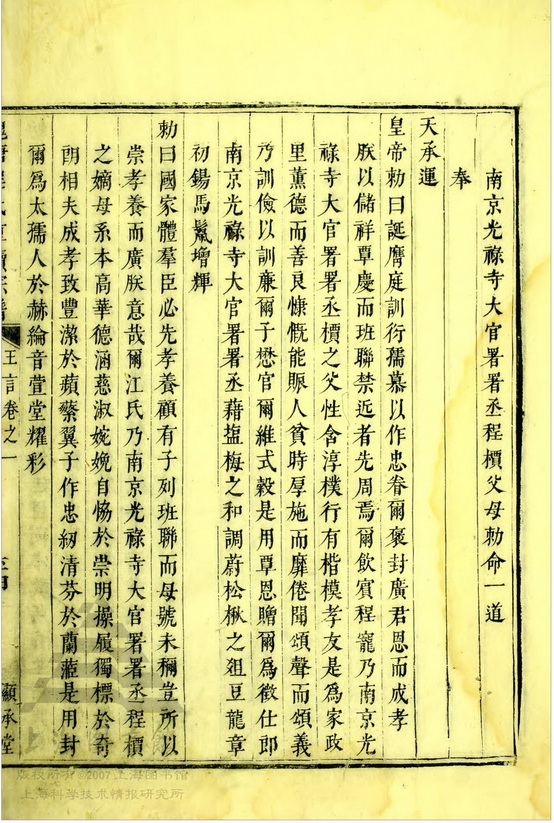 南京光祿寺大官署署丞程檟父母勅命一道
奉
天承運
皇帝勅曰誕膺庭訓衍孺慕以作忠眷爾褒封廣君恩而成孝
朕以儲祥覃慶而班聯禁近者先周焉爾飲賓程寵乃南京光
祿寺大官署署丞檟之父性含淳樸行有楷模孝友是爲家政
里薰德而善良慷慨能賑人貧時厚施而靡倦聞頌聲而頌義
方訓儉以訓廉爾子懋官爾維式穀是用覃恩贈爾爲徵仕郎
南京光祿寺大官署署丞藉塩梅之和調蔚松楸之俎豆龍章
初錫馬鬛增輝
勅曰國家體羣臣必先孝養顧有子列班聯而母號未稱豈所以
崇孝養而廣朕意哉爾江氏乃南京光祿寺大官署署丞程檟
之嫡母系本高華德涵慈淑婉娩自恊於崇明操履獨標於奇
朗相夫成孝致豐潔於蘋蘩翼子作忠紉清芬於蘭茝是用封
爾爲太孺人於赫綸音萱堂耀彩
王言卷之一
顯承堂
版权所有©2007上海图书馆
上海科学技术情报研究所